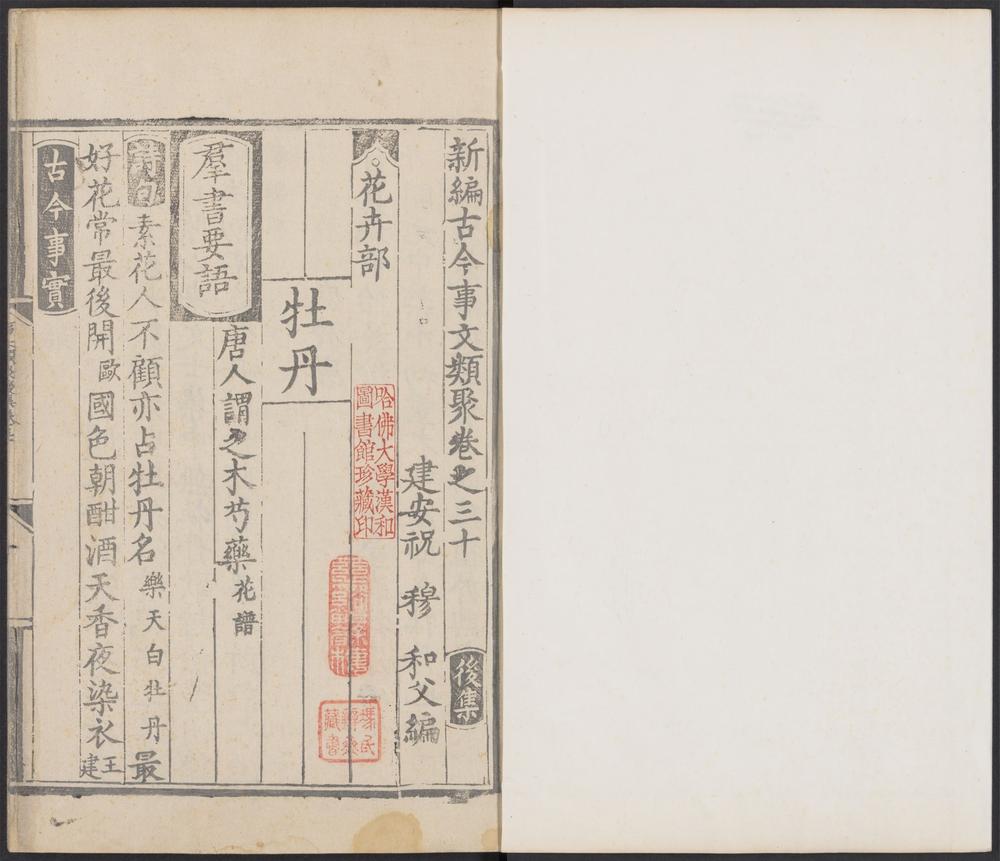 新編古今事文類聚卷之三十
後集
建安祝 穆 和父編
花卉部
哈佛大學漢和
圖書館珍藏印
牡丹
羣書要語
唐人謂之木芍藥花譜
詩句 素花人不顧亦占牡丹名樂天白牡丹最
好花常最後開歐國色朝酣酒天香夜染衣王建
古今事實